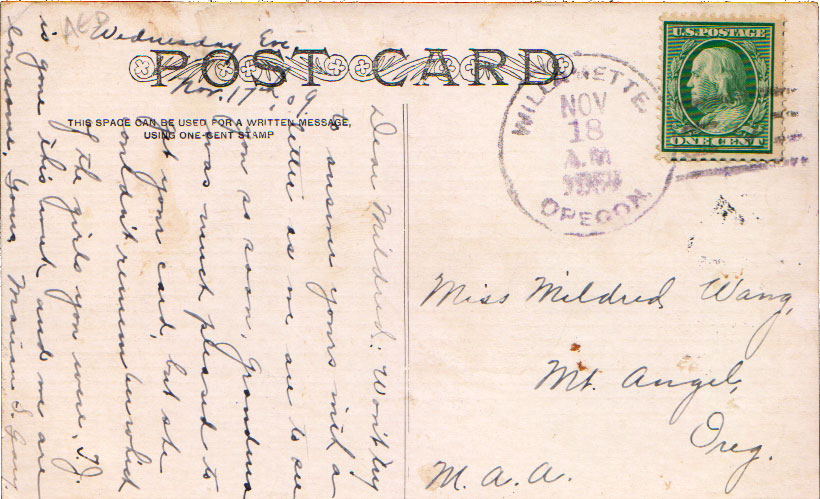 AEP
Wednesday Eve,
POST CARD
Nov. 17th, 09.
THIS SPACE CAN BE USED FOR A WRITTEN MESSAGE,
USING ONE-CENT STAMP
Dear Mildred: Won't try
to answer yours with a
letter as we are to see
you so soon, Grandma
was much pleased to
get your card, but she
couldn't remember which
of the girls you were. T.J.
is gone this week and we are
lonesome. Yours Marian S.
WILLAMETTE,
NOV
18
A.M
OREGON.
U.S. POSTAGE
ONE CENT
Miss Mildred Wang,
Mt. Angel,
Oreg.
M. A. A.